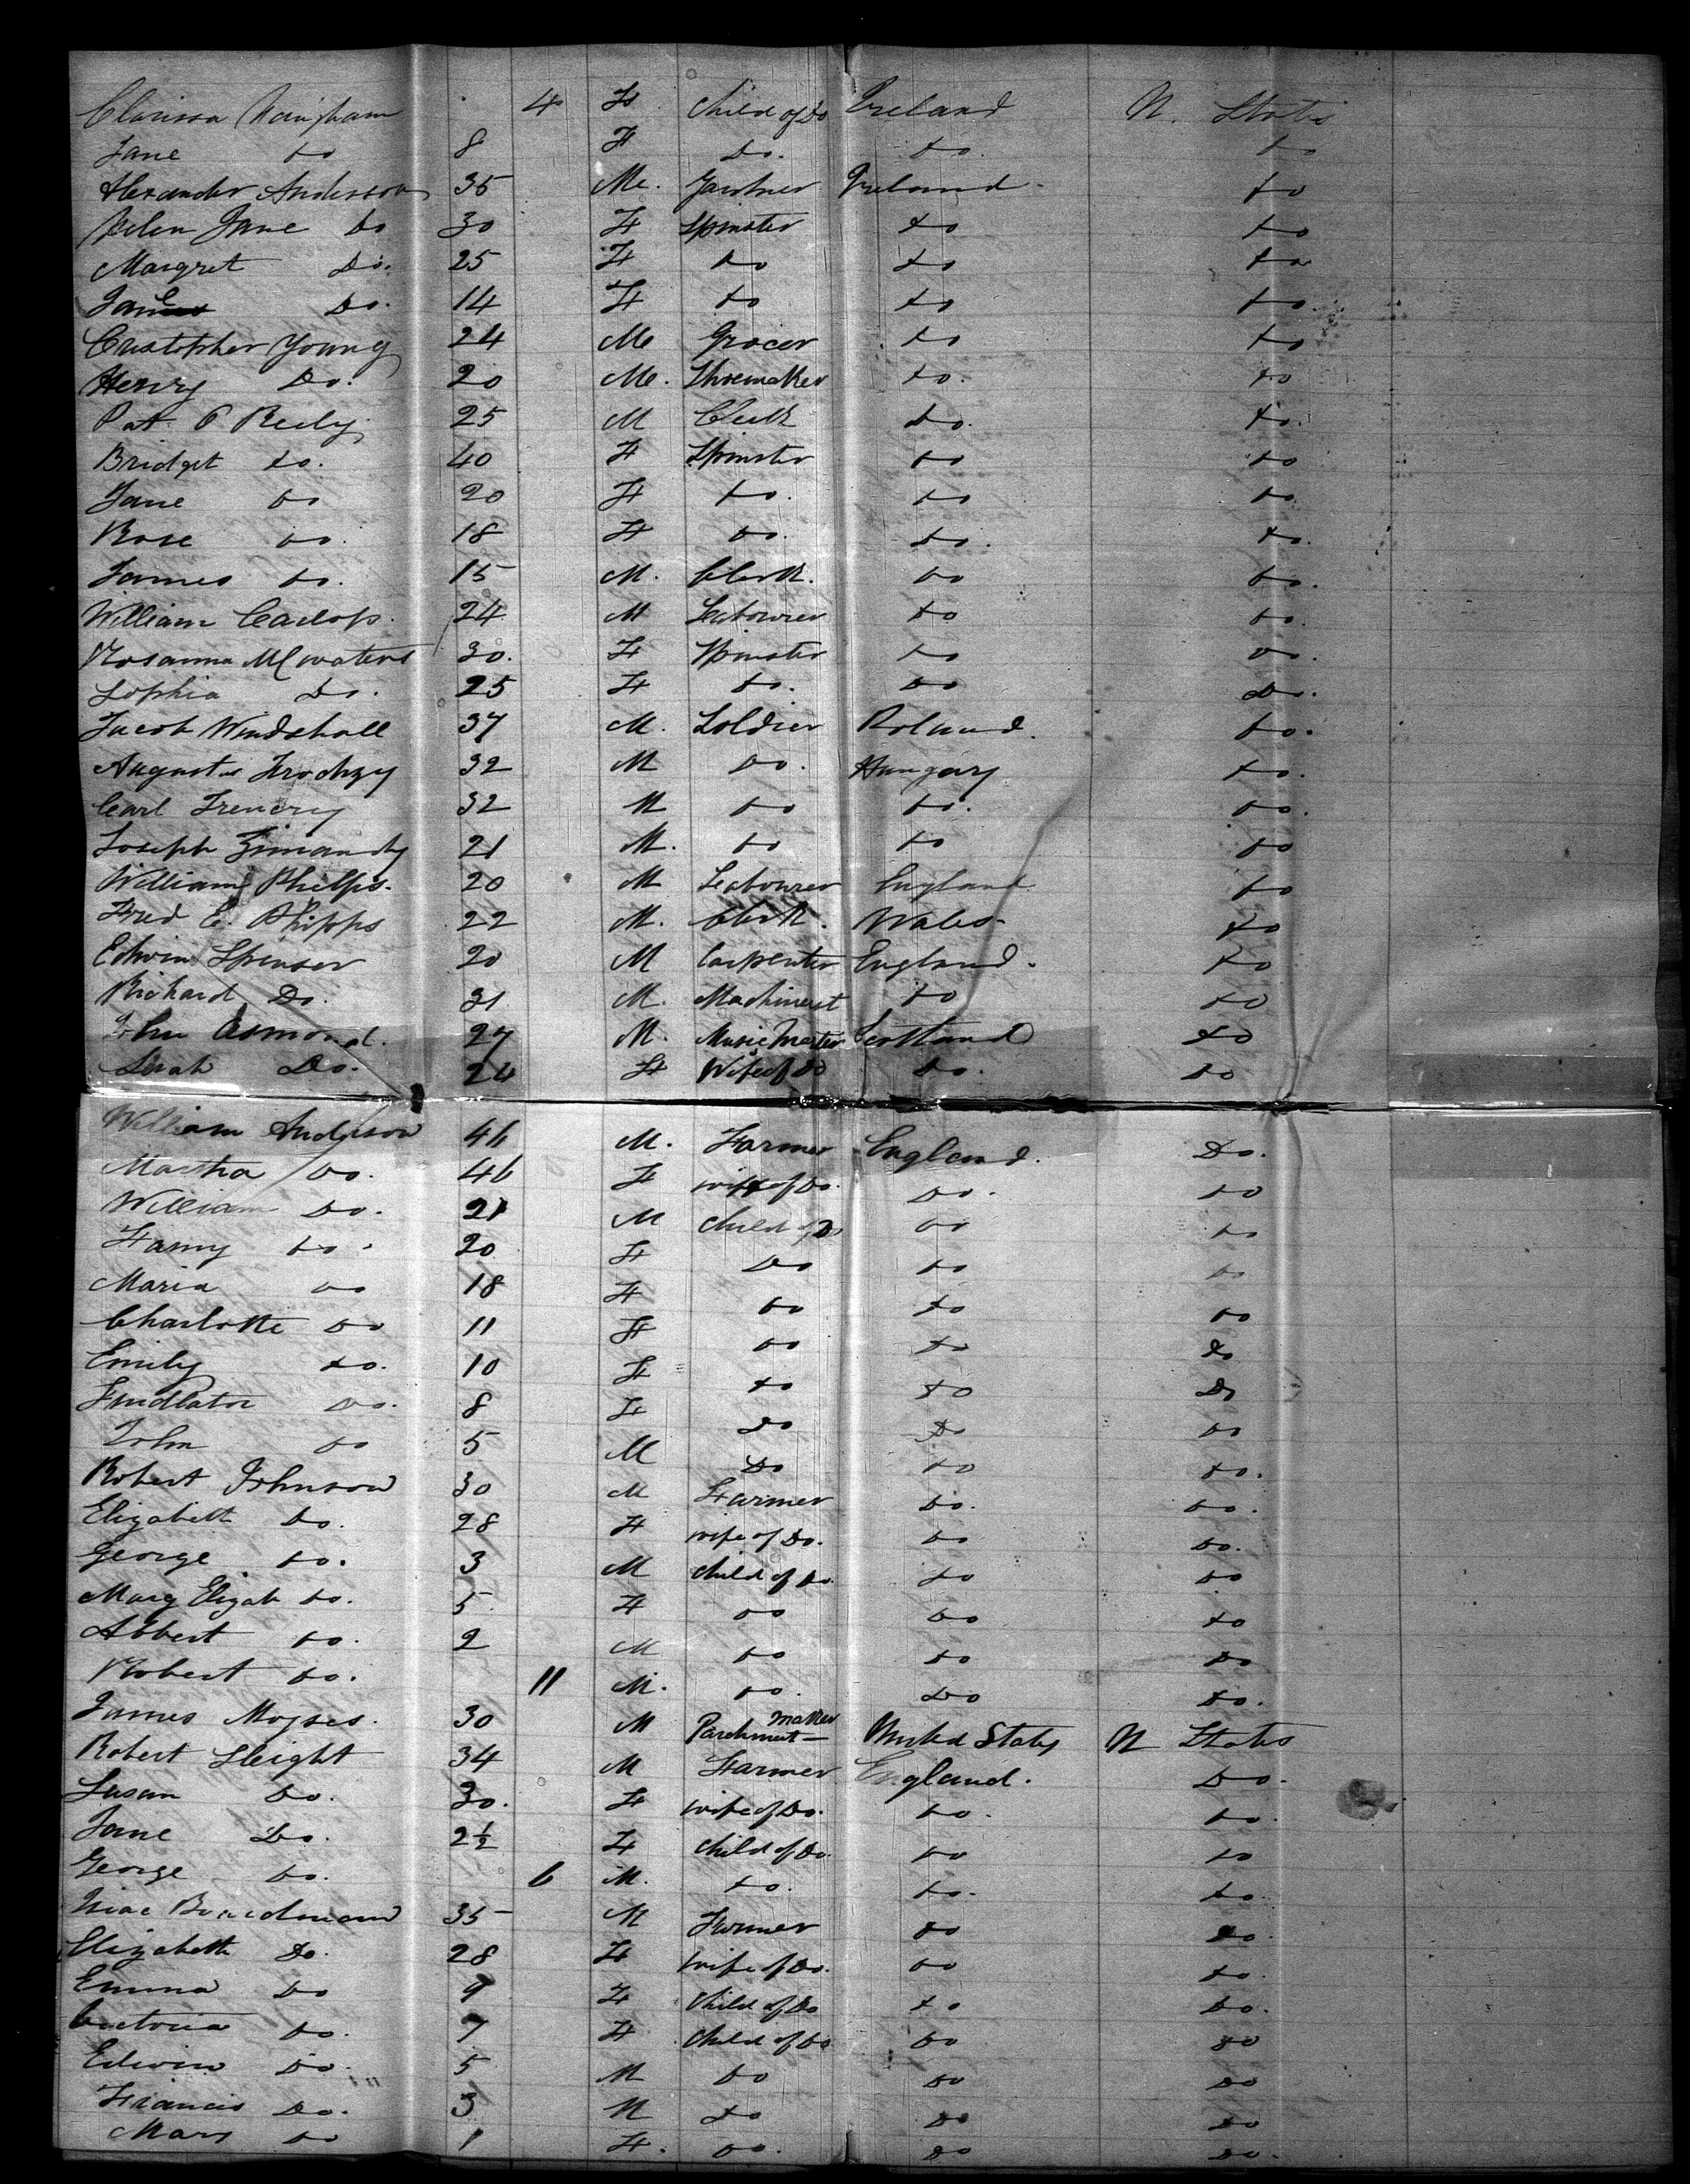 Clarissa 4 F Child of Do Ireland N. States
Jane Do 8 F Do. Do. Do
Alexander Anderson 35 M. Gardner Ireland Do
Helen Jane Do 30 F Spinster Do Do
Margret Do. 25 F Do Do Do
Jane Do. 14 F Do Do Do.
Cristopher Young 24 M Grocer Do Do
Henry Do. 20 M. Shoemaker Do. Do
Pat O Reily 25 M Clerk Do. Do.
Bridget Do. 40 F Spinster Do Do
Jane Do 20 F Do. Do Do
Rose Do. 18 F Do. Do. Do.
James Do. 15 M. Clerk. Do Do.
William 24 M Labourer Do Do.
Rosanna McWaters 30. F Spinster Do Do.
Sophia Do. 25 F Do. Do Do.
Jacob Windshall 37 M. Soldier Poland. Do.
Augustus 32 M Do. Hungary Do.
Carl 32 M Do Do. Do.
Joseph Zimandy 21 M. Do Do Do
William Phelps. 20 M Labourer England Do
Fred E. Phipps 22 M. Clerk. Wales Do
Edwin Spenser 20 M Carpenter England. Do
Richard Do. 31 M. Machinest Do Do
John Osmond. 27 M. Music Master Scotland Do
Sarah Do. 24 F Wife of Do Do. Do
William Anderson 46 M. Farmer England. Do.
Martha Do. 46 F wife of Do. Do. Do
William Do. 21 M Child of Do Do Do
Fanny Do. 20 F Do Do Do
Maria Do 18 F Do Do Do
Charlotte Do 11 F Do Do Do
Emily Do. 10 F Do Do Do
Findlator Do. 8 F Do Do Do
John Do 5 M Do Do Do.
Robert Johnson 30 M Farmer Do. Do.
Elizabeth Do. 28 F wife of Do. Do Do.
George Do. 3 M Child of Do. Do Do
Mary Elizab Do. 5 F Do Do Do
Albert Do. 2 M Do Do Do
Robert Do. 11 M. Do. Do Do.
James Moyses. 30 M Parchment maker United States N States
Robert Sleight 34 M Farmer England. Do.
Susan Do. 30. F wife of Do. Do. Do
Jane Do. 2½ F Child of Do. Do Do
George Do. 6 M. Do. Do. Do.
Isiac Boardmand 35 M Farmer Do Do.
Elizabeth Do. 28 F wife of Do. Do Do.
Emma Do 9 F Child of Do Do Do.
Victoria Do. 7 F Child of Do Do Do
Edwin Do. 5 M Do Do Do
Francis Do. 3 M Do Do Do
Mary Do 1 F. Do. Do Do.